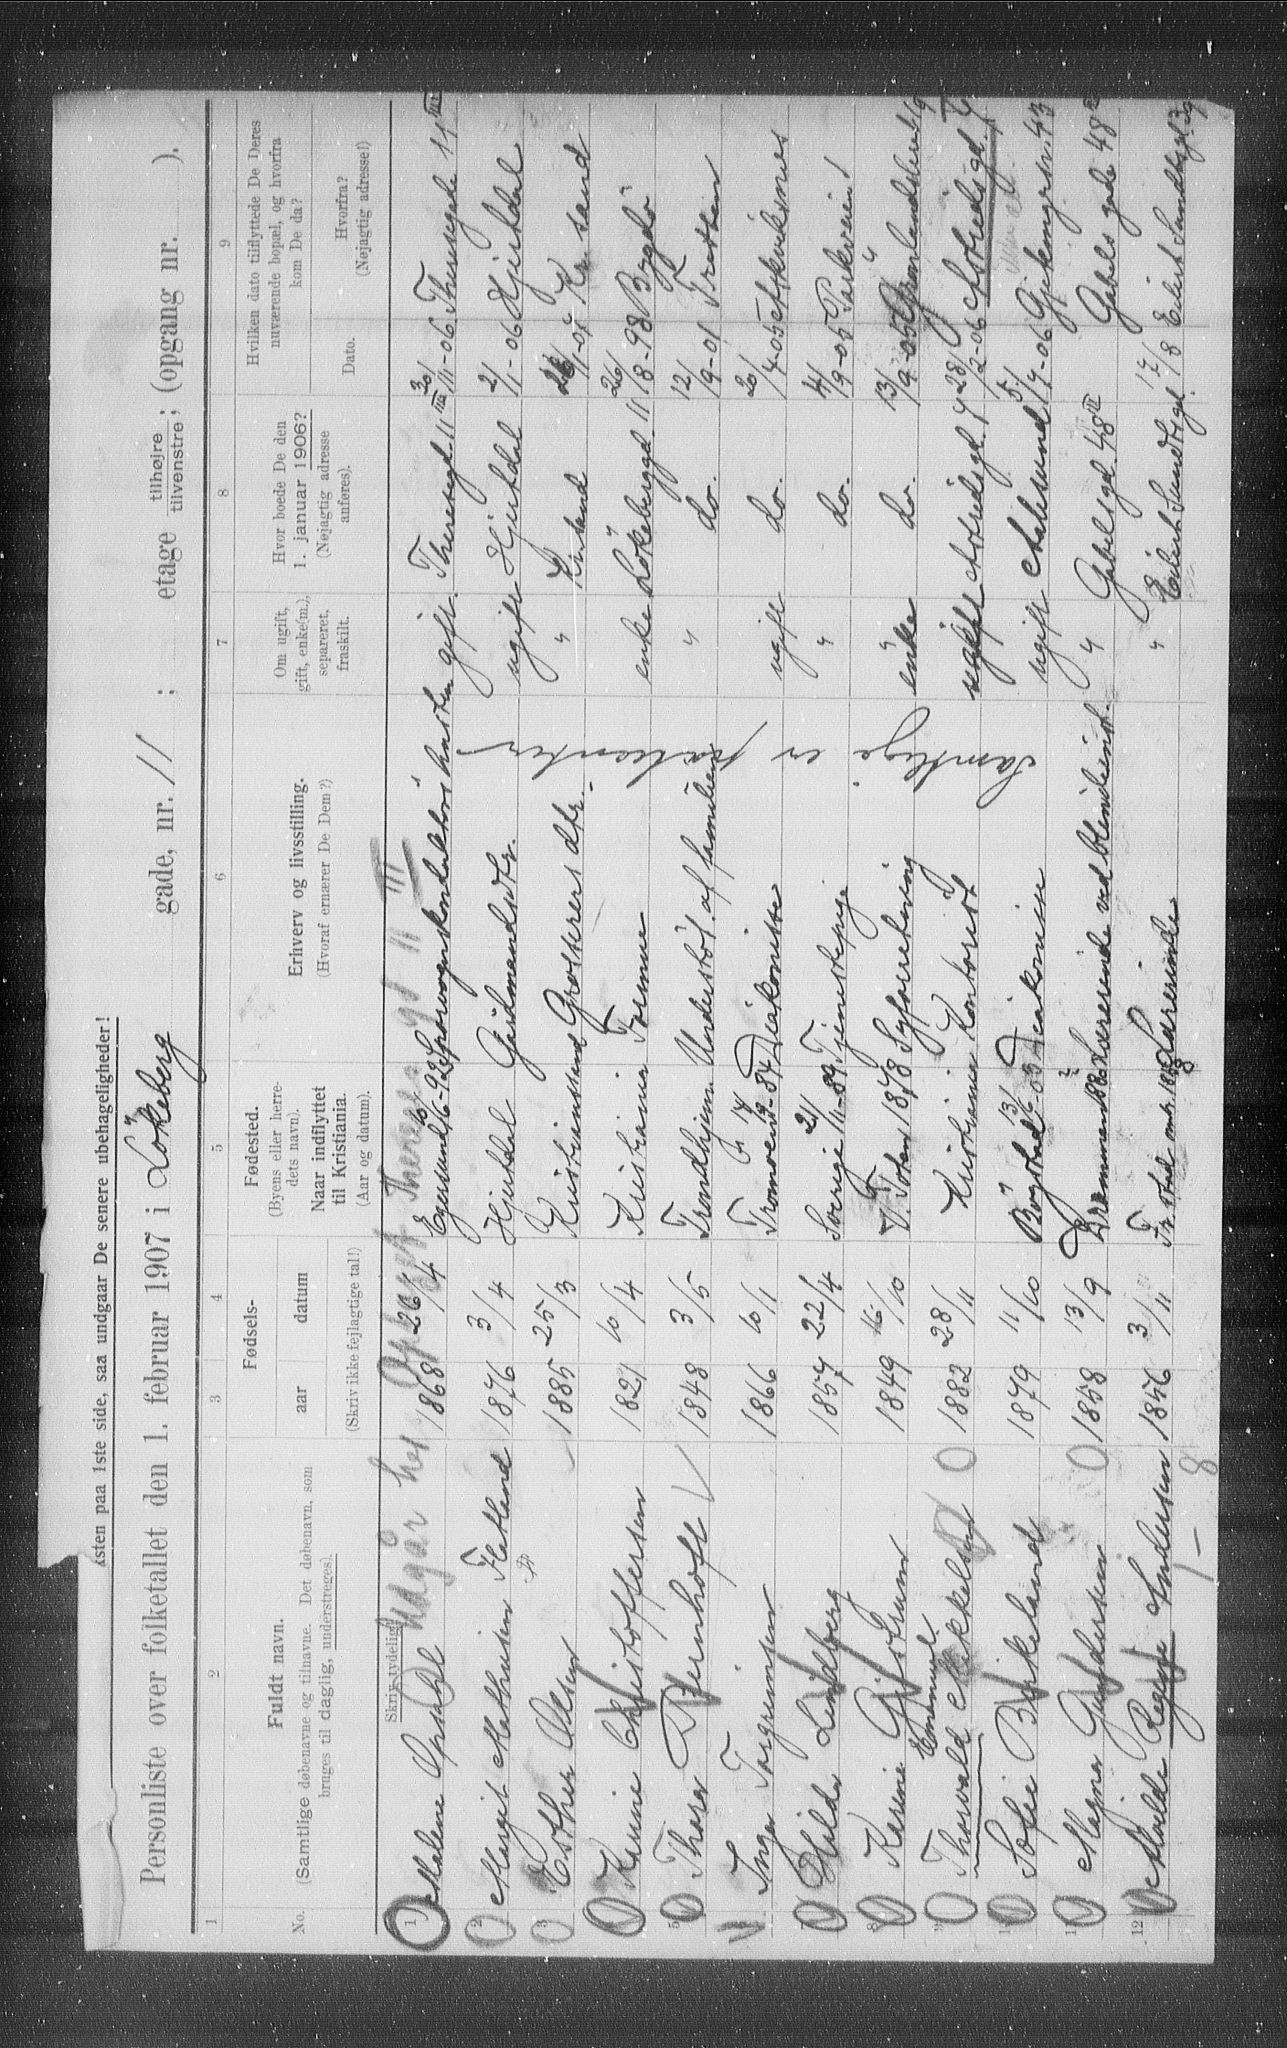 …sten paa 1ste side, saa undgaar De senere ubehageligheder!
Personliste over folketallet den 1. februar 1907 i Løkeberg gade, nr. 11 ; etage tilhøjre / tilvenstre ; (opgang nr. ).
1 2 3 4 5 6 7 8 9
No.
Fuldt navn.
(Samtlige døbenavne og tilnavne. Det døbenavn, som
bruges til daglig, understreges).
Fødsels-
aar datum
(Skriv ikke fejlagtige tal!)
Fødested.
(Byens eller herre-
dets navn).
Naar indflyttet
til Kristiania.
(Aar og datum).
Erhverv og livsstilling.
(Hvoraf ernærer De Dem?)
Om ugift,
gift, enke(m.),
separeret,
fraskilt.
Hvor boede De den
1. januar 1906?
(Nøjagtig adresse
anføres).
Hvilken dato tilflyttede De Deres
nuværende bopæl, og hvorfra
kom De da?
Dato.
Hvorfra?
(Nøjagtig adresse!)
Skriv tydelig!
Udgår her Theresegt 11 III
1 Malene Opsahl 1868 26/4 Egersund Sporvognskonduktørs hustru gift Theresegt. 11 IIII 30/11-06 Theresegade 11 IIII
2 Margit Mathisen Flatland 1876 3/4 Hjertdal Gårdmandsdtr. ugift Hjertdal 2/1-06 Hjertdal
3 Esther Olsen 1885 25/3 Kristianssand Grosserers dtr. " Kr.sand 26/1-07 Kr. sand
Kamine Christoffersen 1821 10/4 Kristiania Formue enke Løkeberggd. 11 26/8-98 Bygdø
5 Thora Bernhoft 1848 3/5 Trondhjem Understøt. af familien " do. 12/9-01 Tretten
Inga Torgrimsen 1866 10/1 Tromøen -84 Diakonisse ugift do. 20/4-05
Hilda Lindberg 1857 22/4 Sverige 21/11-89 Tjenestepige " do. 4/9-05 Parkveien 1
8 Karine Gjestrum 1849 16/10 V. Toten 1878 Syforretning enke do. 13/9-05 Grønlandsleret
Thorvald Emanuel Mikkelsen 1882 28/11 Kristiania Kontorist ugift Astridsgd. 7 28/2-06 Astridsgd. 7
Sofie Birkeland 1879 11/10 Bøgstad 13/6-05 Diakonisse ugift Aalesund 5/7-06 Gjetemyrsv. 43
Magna Gundersen 1858 13/9 Drammen 1880 Lærerinde ved blindeinst. " Gabelsgd. 48 II Gabels gade 48
12 Alvilde Regine Andersen 1856 3/11 Fr.stad omtr. Lærerinde " Eilert Sundtsgd. 17/8 Eilert Sundtsgd.
Samtlige er patienter
- 8